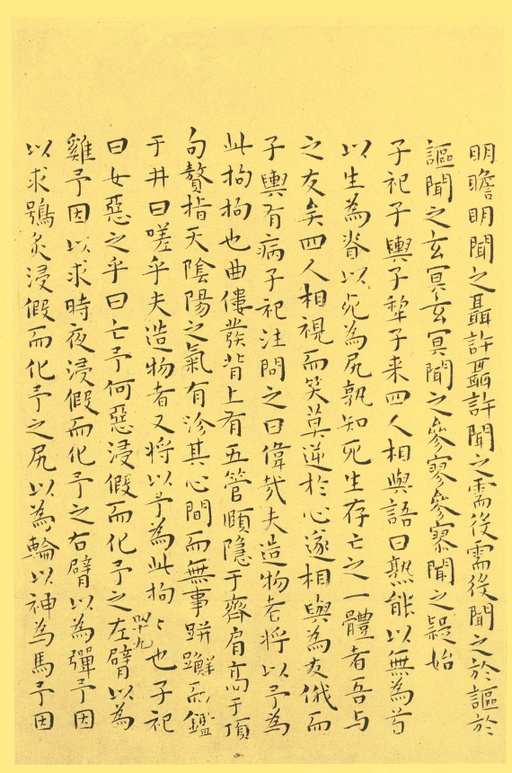 明瞻明聞之聶許聶許聞之需役需役聞之於謳於
謳聞之玄冥玄冥聞之參寥參寥聞之疑始
子祀子輿子犁子来四人相與語曰孰能以無為首
以生為脊以死為尻孰知死生存亡之一體者吾与
之友矣四人相視而笑莫逆於心遂相與為友俄而
子輿有病子祀注問之曰偉哉夫造物者將以予為
此拘拘也曲僂發背上有五管頤隱于齊肩高于頂
句贅指天陰陽之氣有沴其心間而無事跰𨇤而鑑
于井曰嗟乎夫造物者又将以予為此拘〻也子祀
曰女惡之乎曰亡予何惡浸假而化予之左臂以為
雞予因以求時夜浸假而化予之右臂以為彈予因
以求鴞炙浸假而化予之尻以為輪以神為馬予因